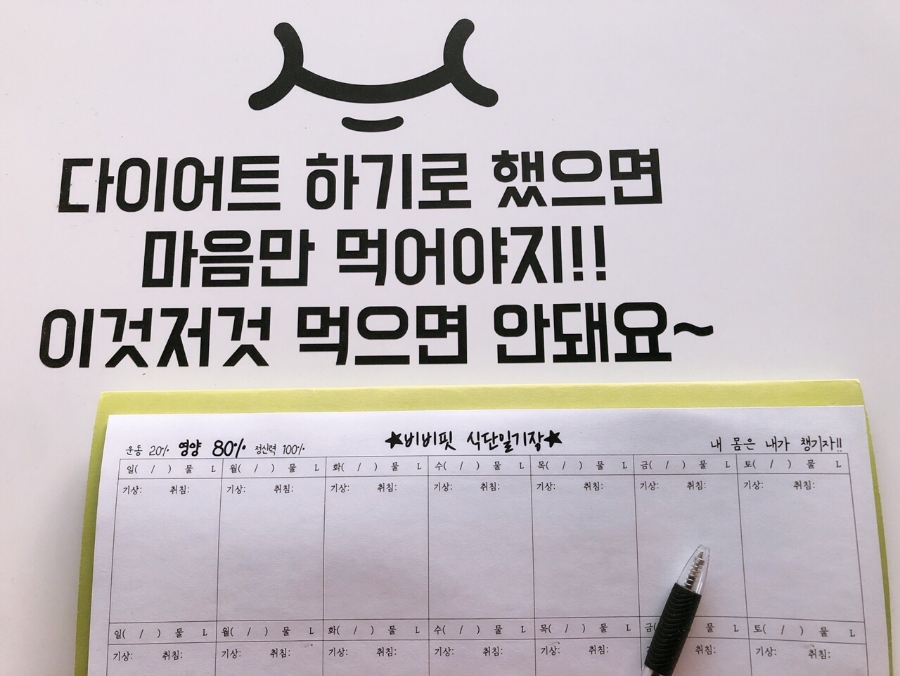 다이어트 하기로 했으면
마음만 먹어야지!!
이것저것 먹으면 안돼요~
운동 20% 영양 80% 정신력 100% ★비비핏 식단일기장★ 내 몸은 내가 챙기자!!
일( / ) 물 L 월( / ) 물 L 화( / ) 물 L 수( / ) 물 L 목( / ) 물 L 금( / ) 물 L 토( / ) 물 L
기상: 취침: 기상: 취침: 기상: 취침: 기상: 취침: 기상: 취침: 기상: 취침: 기상: 취침:
일( / ) 물 L 월( / ) 물 L 화( / ) 물 L 수( / ) 물 L 목( / ) 물 L 금( / ) 물 L 토( / ) 물 L
기상: 취침: 기상: 취침: 기상: 취침: 기상: 취침: 기상: 취침: 취침: 기상: 취침: